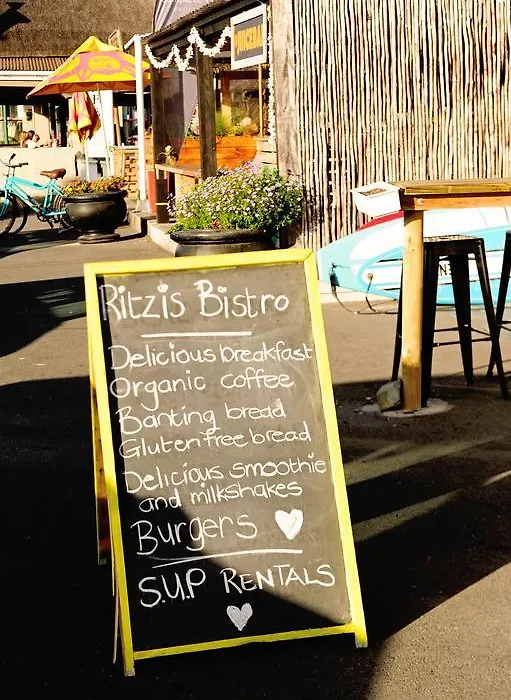 JUICEBAR
Ritzis Bistro
Delicious breakfast
Organic coffee
Banting bread
Glutenfree bread
Delicious smoothie
and milkshakes
Burgers
S.U.P RENTALS